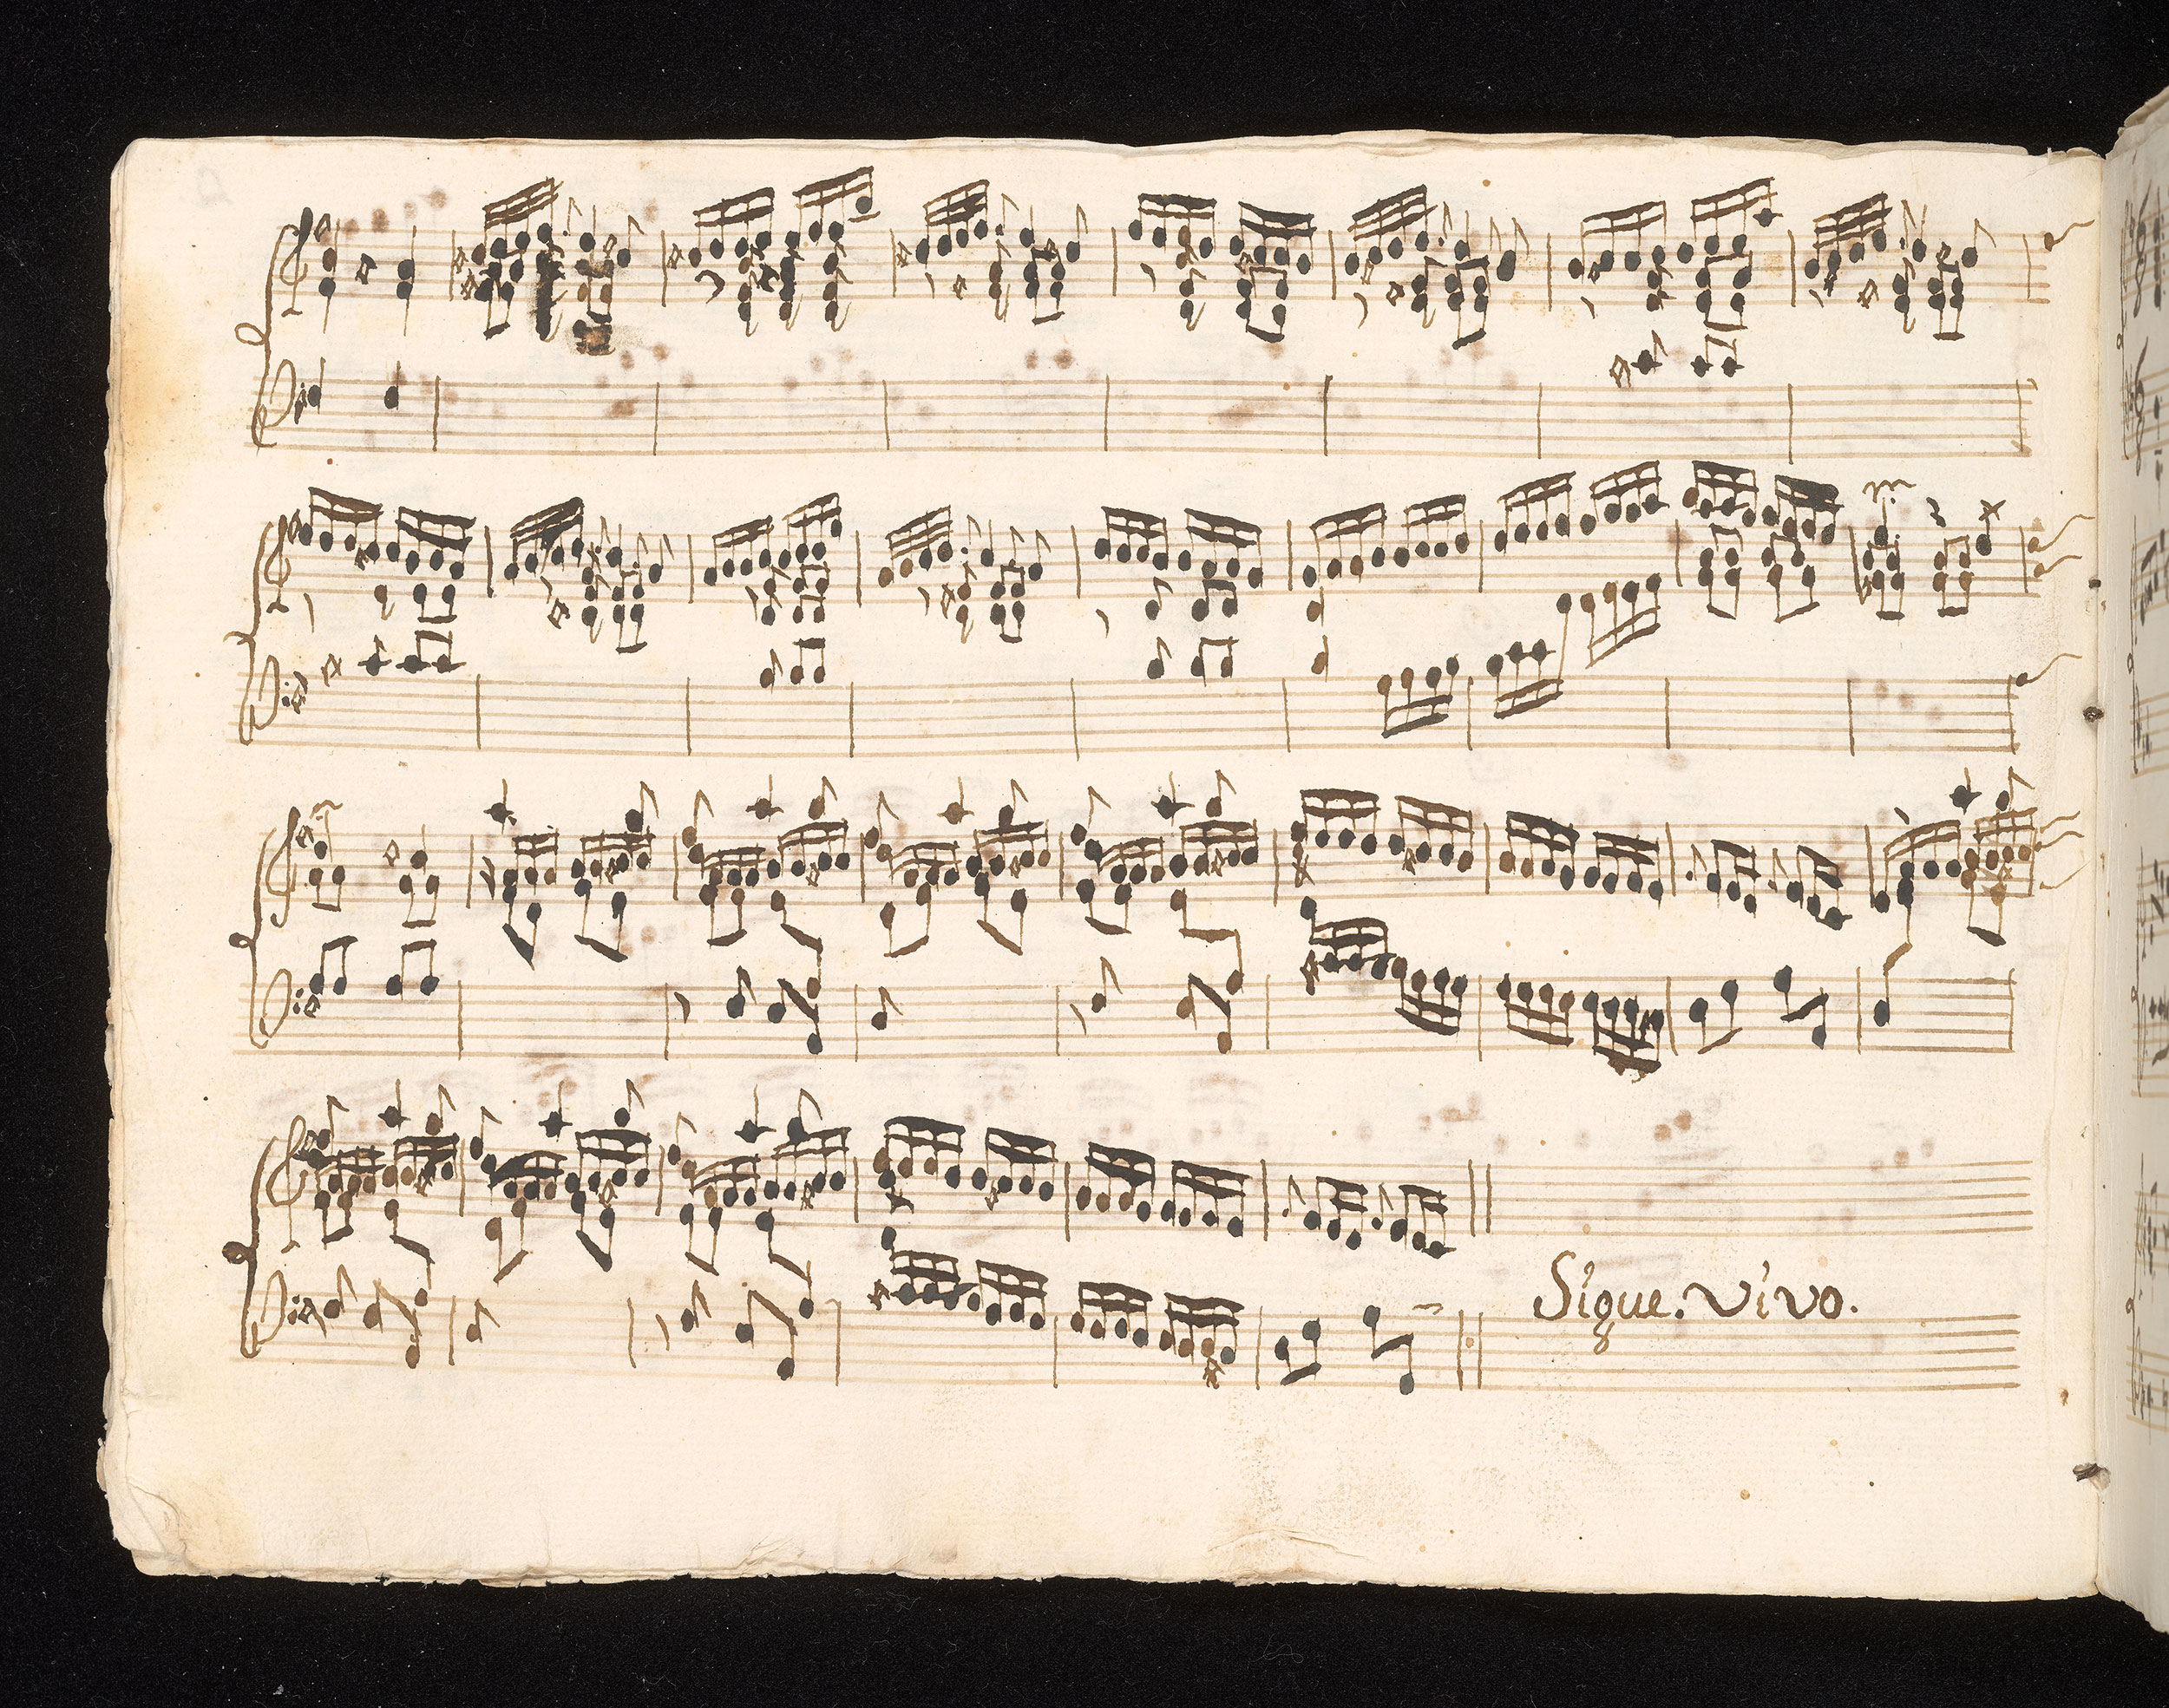 Sigue. vivo.